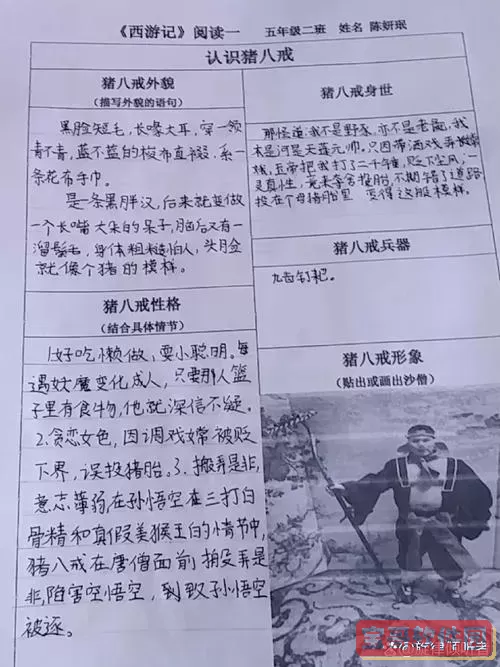 《西游记》阅读一 五年级二班 姓名 陈妍珉
认识猪八戒
猪八戒外貌
(描写外貌的语句)
黑脸短毛,长喙大耳,穿一领
青不青,蓝不蓝的梭布直裰,系一
条花布手巾。
是一条黑胖汉,后来就变做
一个长嘴大朵的呆子,脑后又有一
溜鬃毛,身体粗糙怕人,头脸
就像个猪的模样。
猪八戒性格
(结合具体情节)
1.好吃懒做,耍小聪明。每
遇妖魔变化成人,只要那人篮
子里有食物,他就深信不疑。
2.贪恋女色,因调戏嫦被贬
下界,误投猪胎。3.搬弄是非,
意志薄弱,在孙悟空在三打白
骨精和真假美猴王的情节中,
猪八戒在唐僧面前搬弄是
非,陷害空悟空,到致孙悟空
被逐。
猪八戒身世
那怪道:我不是野豕,亦不是老彘,我
本是河是天蓬元帅,只因带酒戏弄嫦
娥,玉帝把我打了二千锤,贬下尘凡,一
灵真性,竟来夺舍投胎,不期错了道路,
投在个母猪胎里 变得这般模样。
猪八戒兵器
九齿钉耙。
猪八戒形象
(贴出或画出沙僧)
@旋律倾听者